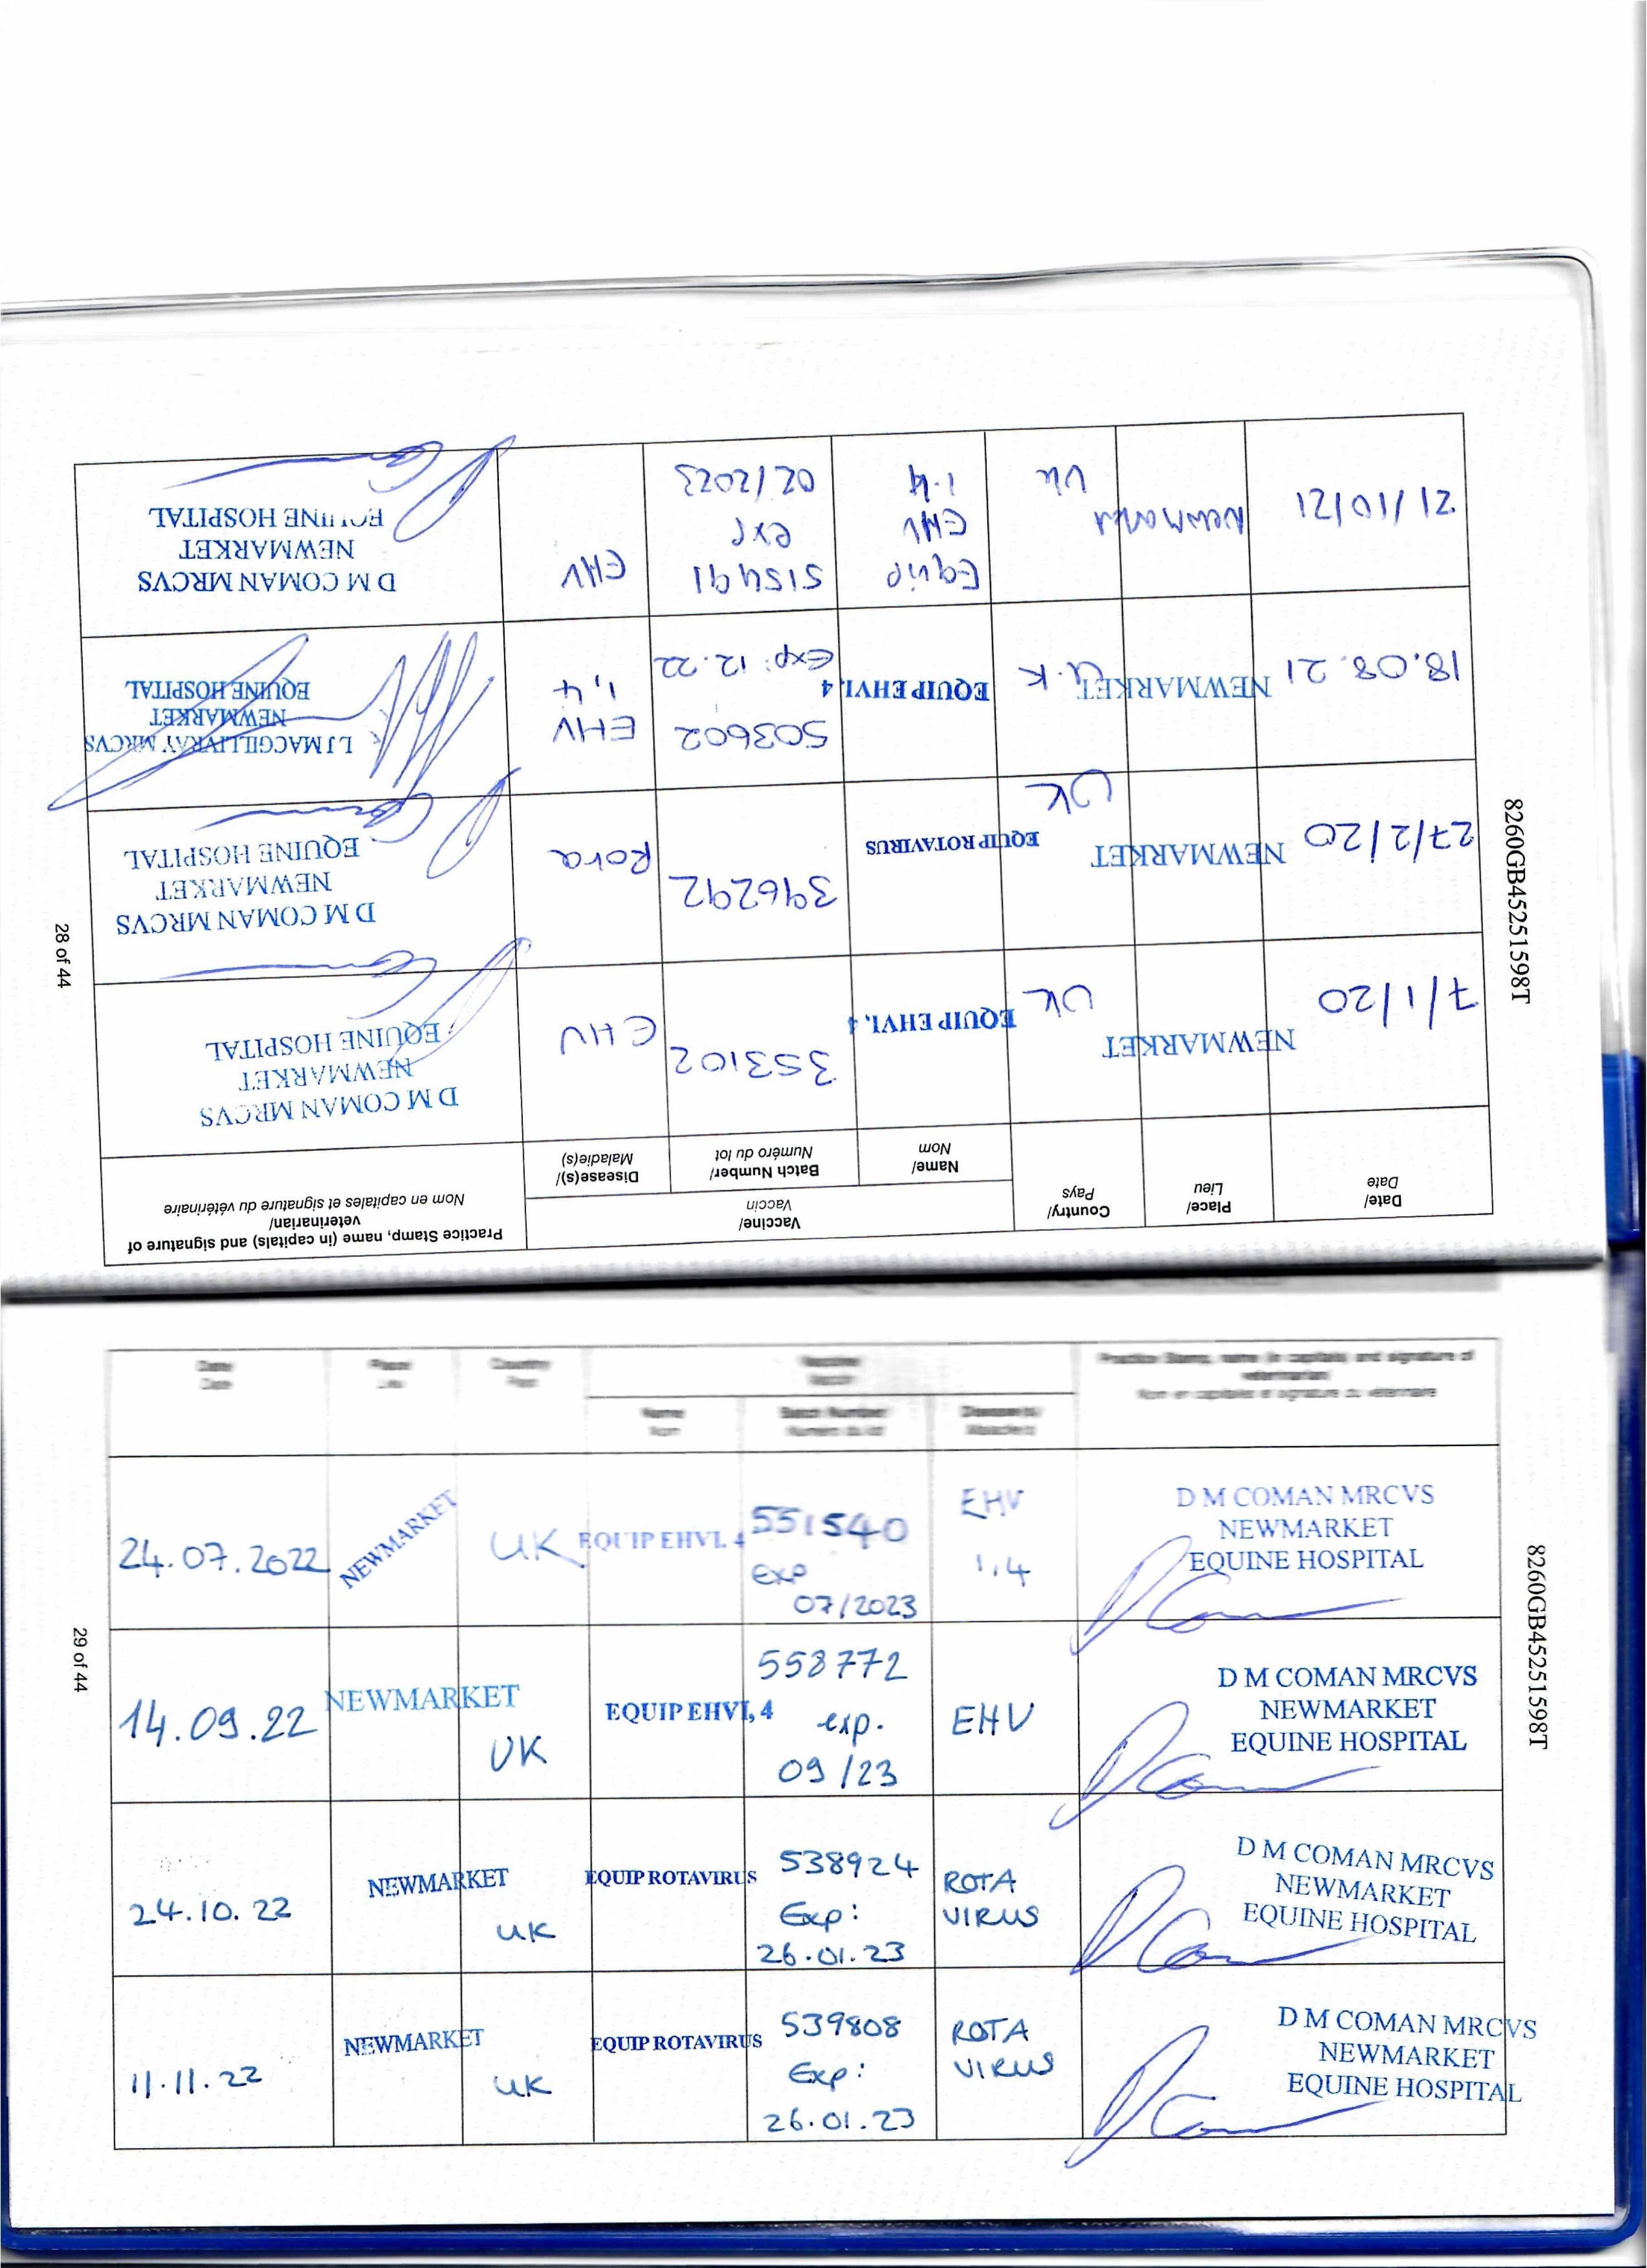 8260GB45251598T
28 of 44
Date/
Date
Place/
Lieu
Country/
Pays
Vaccine/
Vaccin
Name/
Nom
Batch Number/
Numéro du lot
Disease(s)/
Maladie(s)
Practice Stamp, name (in capitals) and signature of
veterinarian/
Nom en capitales et signature du vétérinaire
7/1/20
NEWMARKET
UK
EQUIP EHV1, 4
353102
EHV
D M COMAN MRCVS
NEWMARKET
EQUINE HOSPITAL
27/2/20
NEWMARKET
UK
EQUIP ROTAVIRUS
396292
Rota
D M COMAN MRCVS
NEWMARKET
EQUINE HOSPITAL
18.08.21
NEWMARKET
U.K
EQUIP EHV1, 4
503602
Exp: 12.22
EHV
1,4
L J MACGILLIVRAY MRCVS
NEWMARKET
EQUINE HOSPITAL
21/10/21
Newmarket
UK
Equip
EHV
1.4
515491
exp
02/2023
EHV
D M COMAN MRCVS
NEWMARKET
EQUINE HOSPITAL
8260GB45251598T
29 of 44
Date
Date
Place
Lieu
Country
Pays
Vaccine
Vaccin
Name
Nom
Batch Number
Numéro du lot
Practice Stamp, name (in capitals) and signature of
veterinarian
Nom en capitales et signature du vétérinaire
24.07.2022
NEWMARKET
UK
EQUIP EHV1, 4
551540
exp
07/2023
EHV
1,4
D M COMAN MRCVS
NEWMARKET
EQUINE HOSPITAL
14.09.22
NEWMARKET
UK
EQUIP EHV1, 4
558772
exp.
09/23
EHV
D M COMAN MRCVS
NEWMARKET
EQUINE HOSPITAL
24.10.22
NEWMARKET
UK
EQUIP ROTAVIRUS
538924
Exp:
26.01.23
ROTA
VIRUS
D M COMAN MRCVS
NEWMARKET
EQUINE HOSPITAL
11.11.22
NEWMARKET
UK
EQUIP ROTAVIRUS
539808
Exp:
26.01.23
ROTA
VIRUS
D M COMAN MRCVS
NEWMARKET
EQUINE HOSPITAL